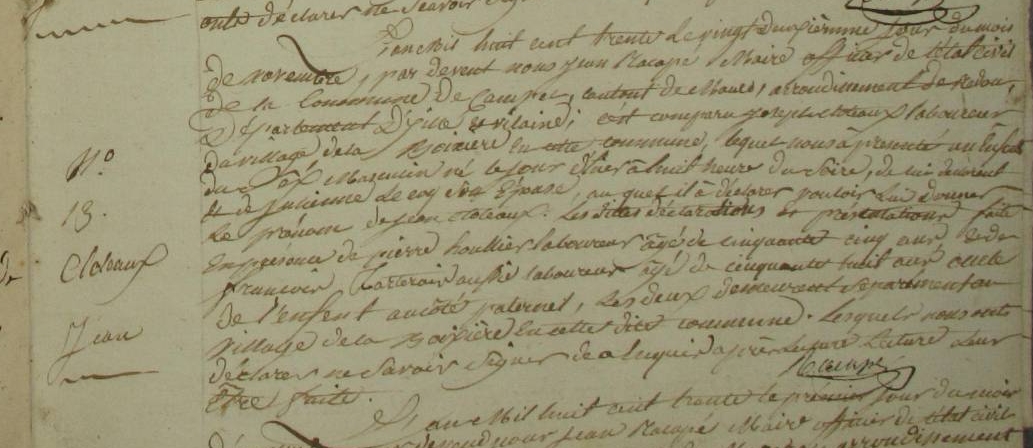 onts déclarer ne Savoir
L'an Mil huit cent trente Le vingt deuxième jour du mois
De novembre, par devent nous Jean Racapé Maire officier de l'état Civil
De la Commune De Campel, Cantont de Maure, arrondiment de Redon,
Département D'ille et vilaine; c'est comparu joseph cloteaux laboureur
du village de la Boixiere En cette commune, lequel nous à présenté un Enfant
du Masculin né le jour D'hier à huit heure du Soire, de lui déclarent
et de julienne Le coq Son Epouse, au quel il à déclarer vouloir Lui donner
Le prénom de jean cloteaux. Les dites déclarations et présentations faite
En présence de pierre houllier laboureur âgé de cinquante cinq ans et de
françois aussi laboureur âgé de cinquante huit ans oncle
De l'enfent au côté paternel, Les deux demeurent Separément au
village de la Boixière En cette dite commune. Lesquels nous ont
déclarer ne Savoir Signer de a lequit après Lecture Leur
Etre faite.
Racapé
N.°
13.
Cloteaux
Jean
L'an Mil huit cent trente le premier jour du mois
jean Racapé Maire officier de l'état civil
arrondisement